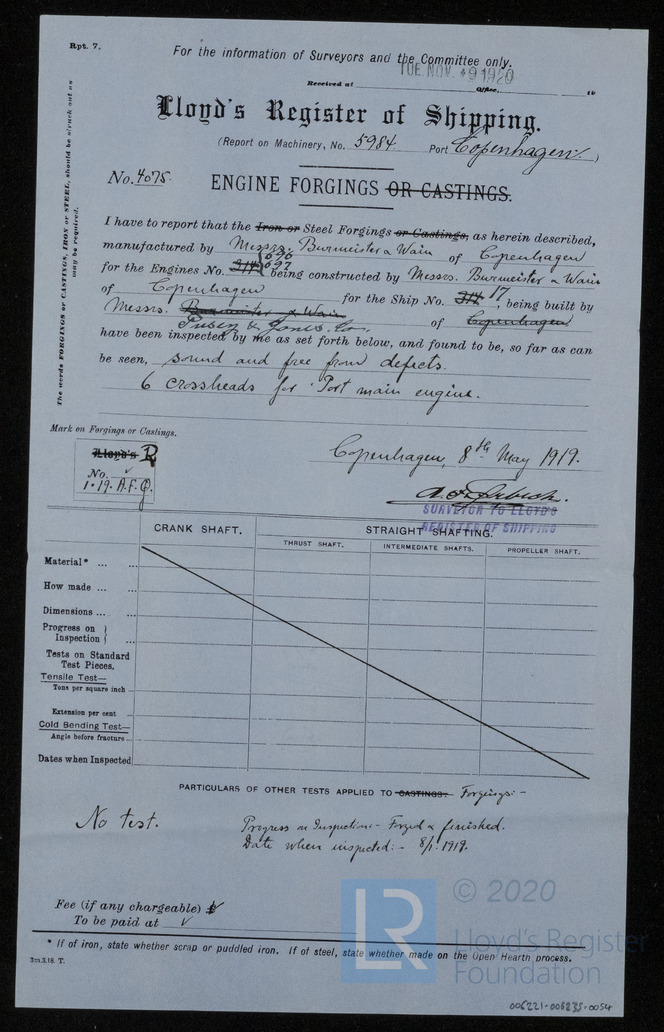 Rpt. 7.
For the information of Surveyors and the Committee only.
TUE. NOV. 9 1920
Received at Office, 19
Lloyd's Register of Shipping.
(Report on Machinery, No. 5984. Port Copenhagen.)
No. 4075.
ENGINE FORGINGS OR CASTINGS.
The words FORGINGS or CASTINGS, IRON or STEEL, should be struck out as
may be required.
I have to report that the Iron or Steel Forgings or Castings, as herein described,
manufactured by Messrs. Burmeister & Wain of Copenhagen
696
for the Engines No. 314 697 being constructed by Messrs. Burmeister & Wain
of Copenhagen for the Ship No. 314 17, being built by
Messrs. Burmeister & Wain
Pusey & Jones Co. of Copenhagen
have been inspected by me as set forth below, and found to be, so far as can
be seen, sound and free from defects.
6 crossheads for Port main engine.
Mark on Forgings or Castings.
Lloyd's R
No. ✓
1.19. A.F.J.
Copenhagen, 8th May 1919.
SURVEYOR TO LLOYD'S
REGISTER OF SHIPPING
CRANK SHAFT.
STRAIGHT SHAFTING.
THRUST SHAFT. INTERMEDIATE SHAFTS. PROPELLER SHAFT.
Material* ... ...
How made ... ...
Dimensions ... ...
Progress on }
Inspection } ...
Tests on Standard
Test Pieces.
Tensile Test—
Tons per square inch ...
Extension per cent ...
Cold Bending Test—
Angle before fracture ...
Dates when Inspected
PARTICULARS OF OTHER TESTS APPLIED TO CASTINGS: Forgings:-
No test.
Progress on Inspection:- Forged & finished.
Date when inspected:- 8/1. 1919.
Fee (if any chargeable) ✓
To be paid at ✓
* If of iron, state whether scrap or puddled iron. If of steel, state whether made on the Open Hearth process.
3m.3.18. T.
LR
© 2020
Lloyd's Register
Foundation
006221-006235-0054